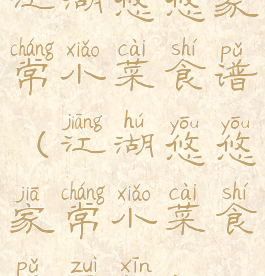 江湖悠悠家
cháng xiǎo cài shí pǔ
常小菜食谱
jiāng hú yōu yōu
(江湖悠悠
jiā cháng xiǎo cài shí
家常小菜食
pǔ zuì xīn